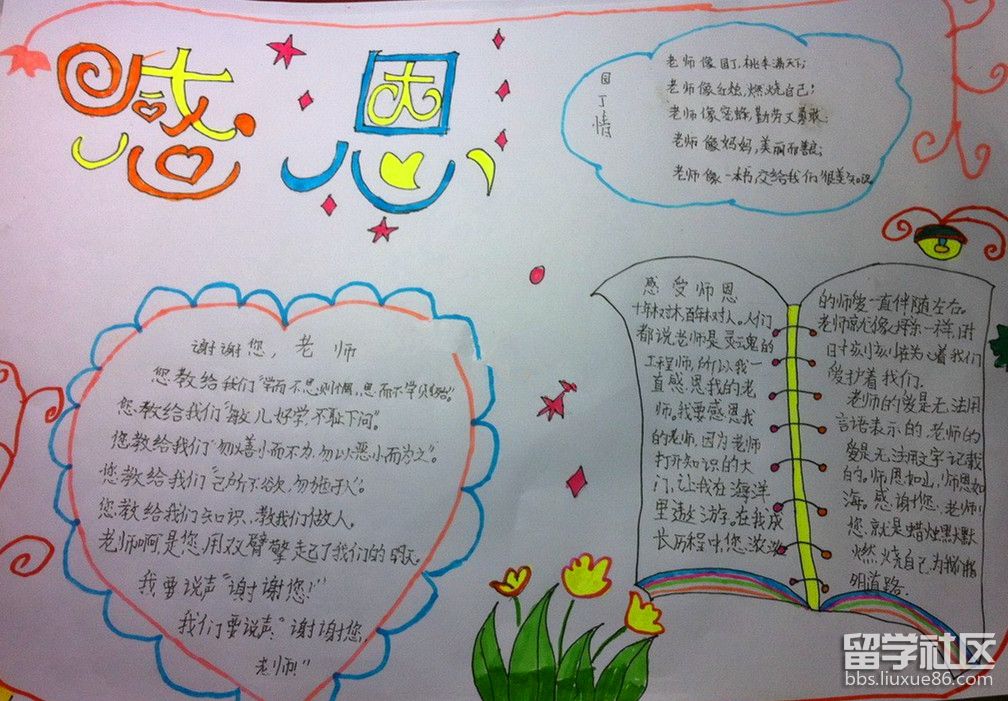 感恩
园丁情
老师像园丁,桃李满天下;
老师像红烛,燃烧自己;
老师像蜜蜂,勤劳又勇敢;
老师像妈妈,美丽和善良;
老师像一本书,交给我们很美知识。
谢谢您,老师
您教给我们“学而不思则惘,思而不学贝殆”。
您教给我们“敏儿好学,不耻下问”。
您教给我们“勿以善小而不为,勿以恶小而为之”。
您教给我们“己所不欲,勿施于人”。
您教给我们知识,教我们做人。
老师啊是您,用双臂擎起了我们的明天
我要说声“谢谢您!”
我们要说声:“谢谢您,
老师!”
感受师恩
十年树木,百年树人。人们
都说老师是灵魂的
工程师,所以我一
直感恩我的老
师。我要感恩我
的老师,因为老师
打开知识的大
门,让我在海洋
里遨游。在我成
长历程中,您浓浓
的师爱一直伴随左右。
老师就像择东一样,时
时刻刻在关心着我们
爱护着我们。
老师的爱是无法用
言语表示的,老师的
爱是无法用文字记载
的。师恩如山,师恩如
海。感谢您,老师!
您就是蜡烛默默
燃烧自己为我们指
明道路。
留学社区
bbs.liuxue86.com